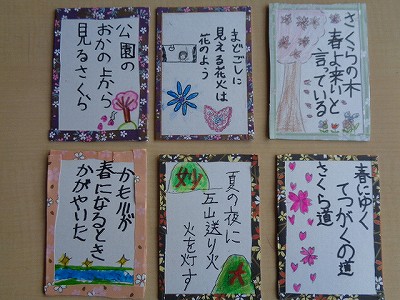 公園の
おかの上から
見るさくら
まどごしに
見える花火は
花のよう
さくらの木
春よ来いと
言っている
かも川が
春になるとき
かがやいた
夏の夜に
五山送り火
火を灯す
妙
大
春にゆく
てつがくの道
さくら道